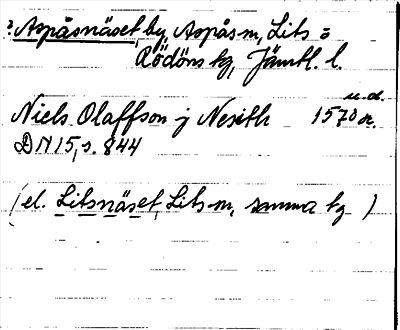 ? Aspåsnäset, by, Aspås sn, Lits o
Rödöns tg, Jämtl. l.
u.d.
Niels Olaffson j Nesith 1570 or.
DN 15, s. 844
(el. Litsnäset, Lits sn, samma tg )